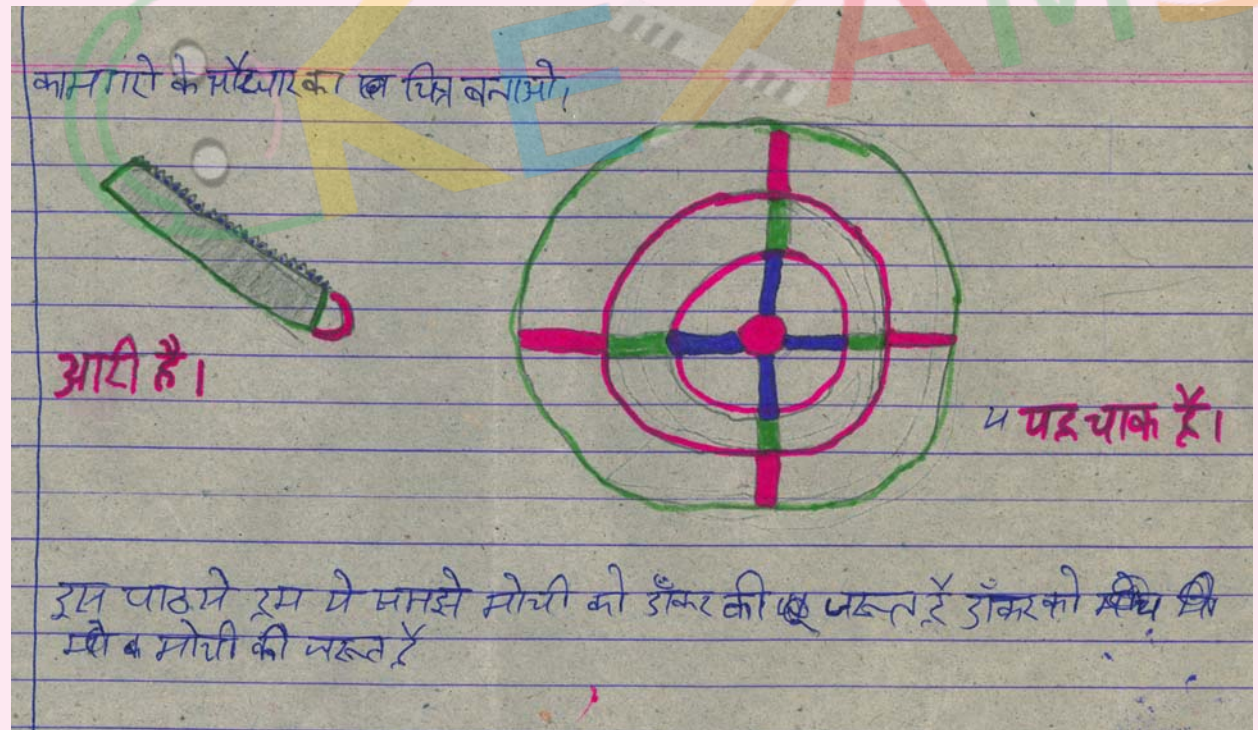 KEXAMS
कामगारो के औरचार का चित्र बनाओ।
आरी है।
यह चाक है।
इस पाठसे हम ये समझे मोची को डॉकर की जरूत है डॉकर को
मोची की जरूत है